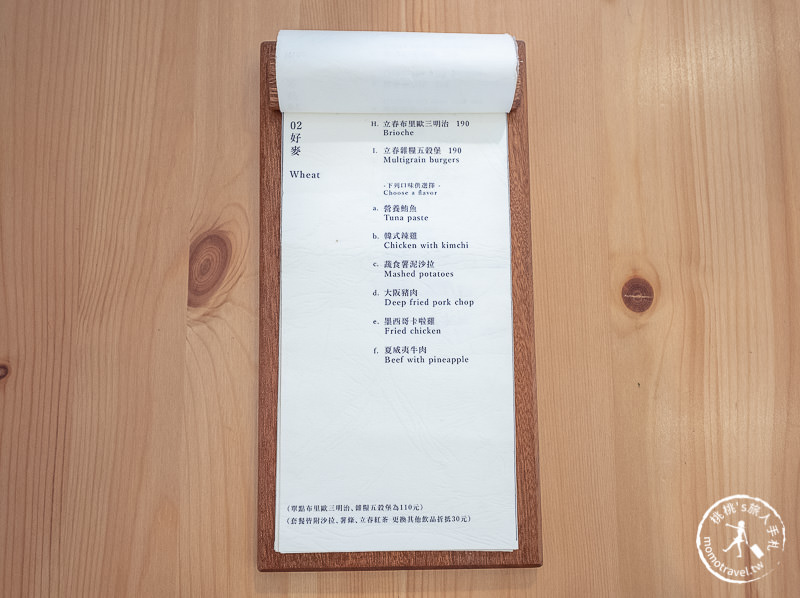 02
好
麥
Wheat
H. 立春布里歐三明治 190
Brioche
I. 立春雜糧五穀堡 190
Multigrain burgers
-下列口味供選擇-
Choose a flavor
a. 營養鮪魚
Tuna paste
b. 韓式辣雞
Chicken with kimchi
c. 蔬食薯泥沙拉
Mashed potatoes
d. 大阪豬肉
Deep fried pork chop
e. 墨西哥卡啦雞
Fried chicken
f. 夏威夷牛肉
Beef with pineapple
(單點布里歐三明治、雜糧五穀堡為110元)
(套餐皆附沙拉、薯條、立春紅茶 更換其他飲品折抵30元)
桃桃's旅人手札
momotravel.tw